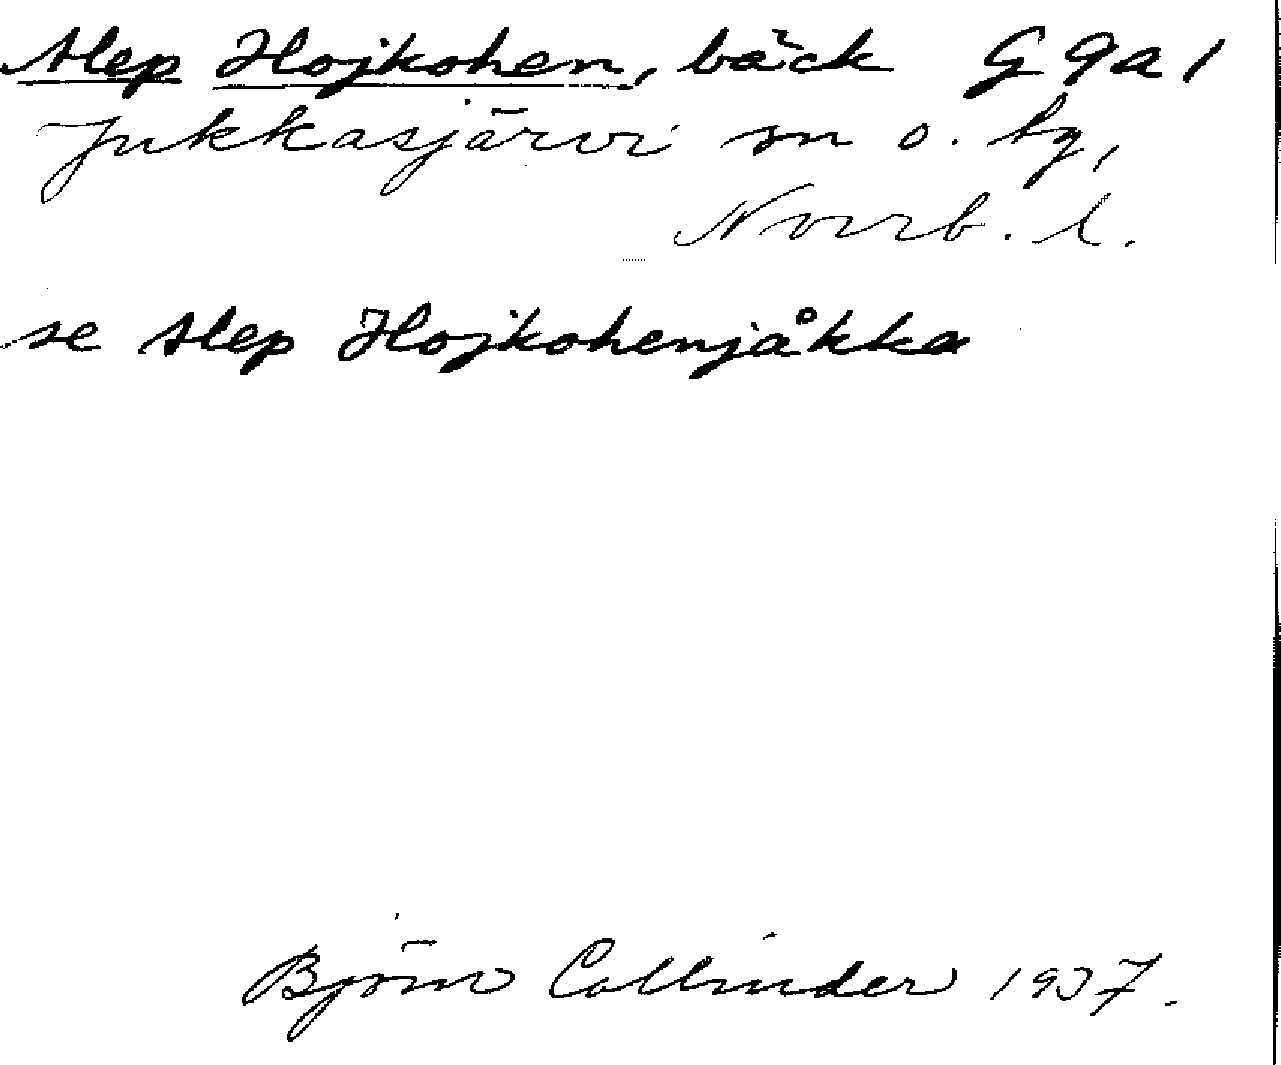 Alep Hojkohen, bäck G 9a 1
Jukkasjärvi sn o. tg,
Norrb. l.
se Alep Hojkohenjåkka
Björn Collinder 1937.